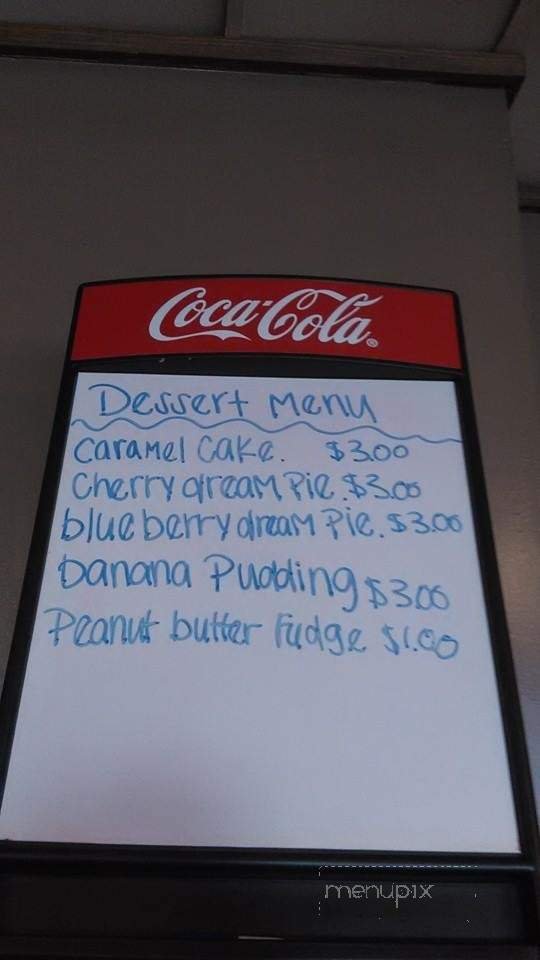 Coca-Cola®
Dessert Menu
Caramel Cake. $3.00
Cherry dream Pie. $3.00
blueberry dream Pie. $3.00
banana Pudding $3.00
Peanut butter Fudge $1.00
menupix